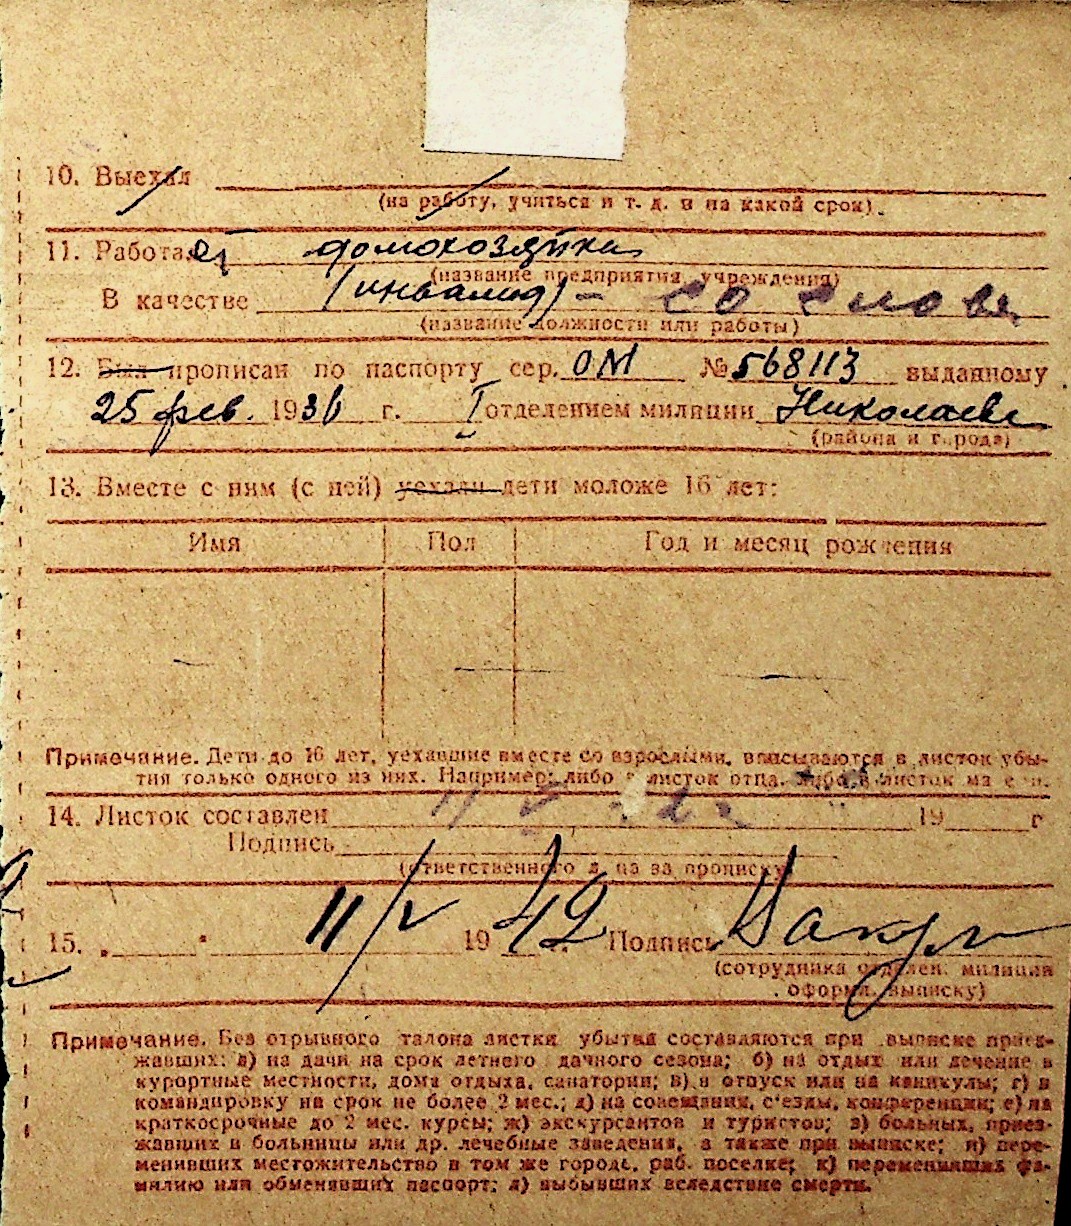 10. Выехал
(на работу, учиться и т. д. и на какой срок).
11. Работает домохозяйка
(название предприятия, учреждения)
В качестве (инвалид) – со слов
(название должности или работы)
12. Был прописан по паспорту сер. ОМ № 568113 выданному
25 фев. 1936 г. I отделением милиции Николаева
(района и города)
13. Вместе с ним (с ней) уехали дети моложе 16 лет:
Имя Пол Год и месяц рождения
Примечание. Дети до 16 лет, уехавшие вместе со взрослыми, вписываются в листок убы-
тия только одного из них. Например: либо в листок отца, либо в листок матери.
14. Листок составлен 19 г
Подпись
(ответственного лица за прописку)
15. 11/V 1942 Подпись
(сотрудника отделен. милиции
оформ. выписку)
Примечание. Без отрывного талона листки убытия составляются при выписке приез-
жавших: а) на дачи на срок летнего дачного сезона; б) на отдых или лечение в
курортные местности, дома отдыха, санатории; в) в отпуск или на каникулы; г) в
командировку на срок не более 2 мес.; д) на совещания, с'езды, конференции; е) на
краткосрочные до 2 мес. курсы; ж) экскурсантов и туристов; з) больных, приез-
жавших в больницы или др. лечебные заведения, а также при выписке; и) пере-
менивших местожительство в том же городе, раб. поселке; к) переменивших фа-
милию или обменявших паспорт; л) выбывших вследствие смерти.